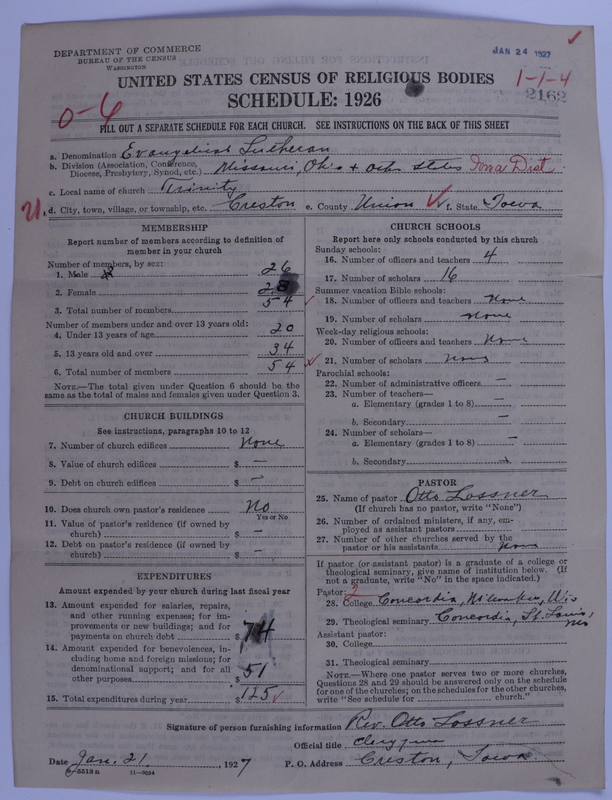 DEPARTMENT OF COMMERCE
BUREAU OF THE CENSUS
WASHINGTON
JAN 24 1927
1-1-4
2162
UNITED STATES CENSUS OF RELIGIOUS BODIES
SCHEDULE: 1926
0-6
FILL OUT A SEPARATE SCHEDULE FOR EACH CHURCH. SEE INSTRUCTIONS ON THE BACK OF THIS SHEET
a. Denomination Evangelical Lutheran
b. Division (Association, Conference, Diocese, Presbytery, Synod, etc.) Missouri, Ohio + other states Iowa Dist
c. Local name of church Trinity
d. City, town, village, or township, etc. Creston e. County Union f. State Iowa
MEMBERSHIP
Report number of members according to definition of
member in your church
Number of members, by sex:
1. Male 26
2. Female 28
3. Total number of members 54
Number of members under and over 13 years old:
4. Under 13 years of age 20
5. 13 years old and over 34
6. Total number of members 54
NOTE.—The total given under Question 6 should be the
same as the total of males and females given under Question 3.
CHURCH BUILDINGS
See instructions, paragraphs 10 to 12
7. Number of church edifices None
8. Value of church edifices $ —
9. Debt on church edifices $ —
10. Does church own pastor's residence No
Yes or No
11. Value of pastor's residence (if owned by
church) $ —
12. Debt on pastor's residence (if owned by
church) $ —
EXPENDITURES
Amount expended by your church during last fiscal year
13. Amount expended for salaries, repairs,
and other running expenses; for im-
provements or new buildings; and for
payments on church debt $ 74
14. Amount expended for benevolences, in-
cluding home and foreign missions; for
denominational support; and for all
other purposes $ 51
15. Total expenditures during year $ 125
CHURCH SCHOOLS
Report here only schools conducted by this church
Sunday schools:
16. Number of officers and teachers 4
17. Number of scholars 16
Summer vacation Bible schools:
18. Number of officers and teachers None
19. Number of scholars None
Week-day religious schools:
20. Number of officers and teachers None
21. Number of scholars None
Parochial schools:
22. Number of administrative officers —
23. Number of teachers—
a. Elementary (grades 1 to 8) —
b. Secondary —
24. Number of scholars—
a. Elementary (grades 1 to 8) —
b. Secondary —
PASTOR
25. Name of pastor Otto Lossner
(If church has no pastor, write "None")
26. Number of ordained ministers, if any, em-
ployed as assistant pastors
27. Number of other churches served by the
pastor or his assistants None
If pastor (or assistant pastor) is a graduate of a college or
theological seminary, give name of institution below. (If
not a graduate, write "No" in the space indicated.)
Pastor: 2
28. College Concordia, Milwaukee, Wis
29. Theological seminary Concordia, St. Louis, Mo
Assistant pastor:
30. College
31. Theological seminary
NOTE.—Where one pastor serves two or more churches,
Questions 28 and 29 should be answered only on the schedule
for one of the churches; on the schedules for the other churches,
write "See schedule for church."
Signature of person furnishing information Rev. Otto Lossner
Official title Clergyman
Date Jan. 21, 1927 P. O. Address Creston, Iowa
8-5513 a 11-9024